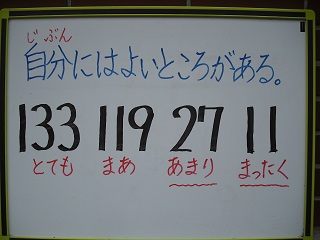 じぶん
自分にはよいところがある。
133 119 27 11
とても まあ あまり まったく